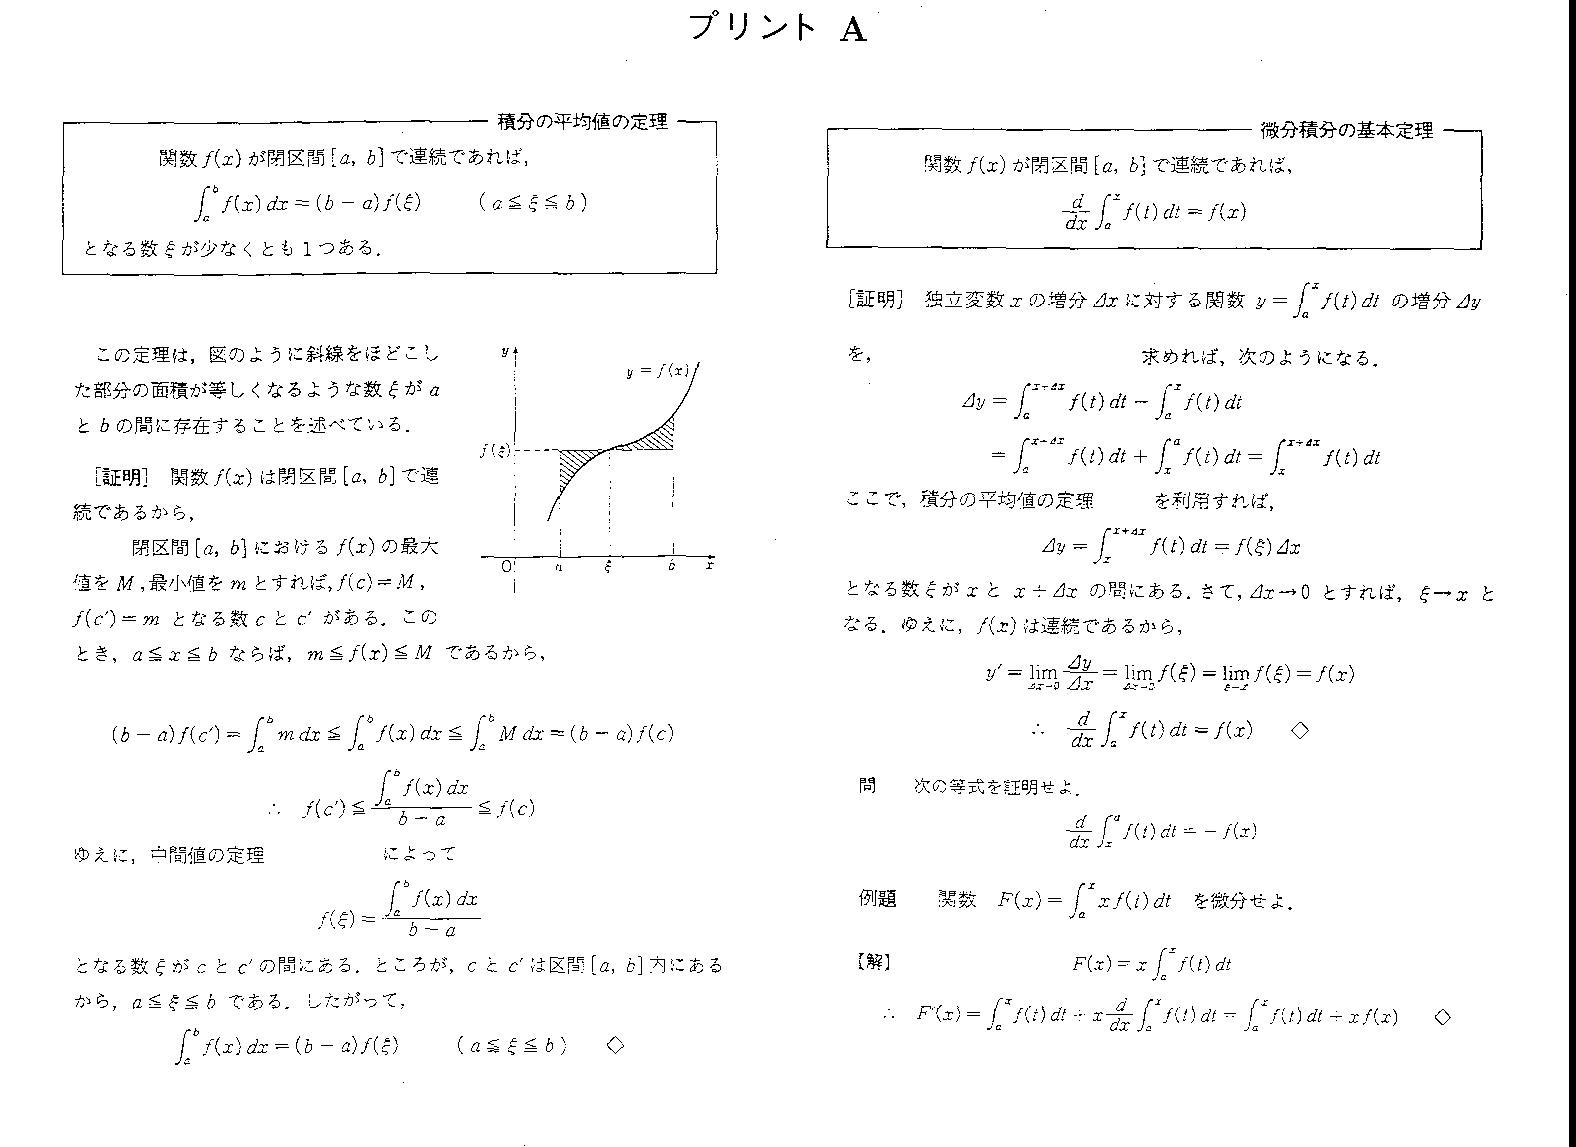 プリント A
積分の平均値の定理
関数 f(x) が閉区間 [a, b] で連続であれば,
∫_a^b f(x) dx = (b − a) f(ξ)  ( a ≦ ξ ≦ b )
となる数 ξ が少なくとも 1 つある.
この定理は, 図のように斜線をほどこし
た部分の面積が等しくなるような数 ξ が a
と b の間に存在することを述べている.
[証明] 関数 f(x) は閉区間 [a, b] で連
続であるから,
閉区間 [a, b] における f(x) の最大
値を M , 最小値を m とすれば, f(c) = M ,
f(c′) = m となる数 c と c′ がある. この
とき, a ≦ x ≦ b ならば, m ≦ f(x) ≦ M であるから,
y
y = f(x)
f(ξ)
O a ξ b x
(b − a) f(c′) = ∫_a^b m dx ≦ ∫_a^b f(x) dx ≦ ∫_a^b M dx = (b − a) f(c)
∴ f(c′) ≦ ∫_a^b f(x) dx / (b − a) ≦ f(c)
ゆえに, 中間値の定理 によって
f(ξ) = ∫_a^b f(x) dx / (b − a)
となる数 ξ が c と c′ の間にある. ところが, c と c′ は区間 [a, b] 内にある
から, a ≦ ξ ≦ b である. したがって,
∫_a^b f(x) dx = (b − a) f(ξ)  ( a ≦ ξ ≦ b ) ◇
微分積分の基本定理
関数 f(x) が閉区間 [a, b] で連続であれば,
d/dx ∫_a^x f(t) dt = f(x)
[証明] 独立変数 x の増分 Δx に対する関数 y = ∫_a^x f(t) dt の増分 Δy
を, 求めれば, 次のようになる.
Δy = ∫_a^{x+Δx} f(t) dt − ∫_a^x f(t) dt
= ∫_a^{x+Δx} f(t) dt + ∫_x^a f(t) dt = ∫_x^{x+Δx} f(t) dt
ここで, 積分の平均値の定理 を利用すれば,
Δy = ∫_x^{x+Δx} f(t) dt = f(ξ) Δx
となる数 ξ が x と x + Δx の間にある. さて, Δx → 0 とすれば, ξ → x と
なる. ゆえに, f(x) は連続であるから,
y′ = lim_{Δx→0} Δy/Δx = lim_{Δx→0} f(ξ) = lim_{ξ→x} f(ξ) = f(x)
∴ d/dx ∫_a^x f(t) dt = f(x) ◇
問 次の等式を証明せよ.
d/dx ∫_x^a f(t) dt = − f(x)
例題 関数 F(x) = ∫_a^x x f(t) dt を微分せよ.
【解】 F(x) = x ∫_a^x f(t) dt
∴ F′(x) = ∫_a^x f(t) dt + x d/dx ∫_a^x f(t) dt = ∫_a^x f(t) dt + x f(x) ◇